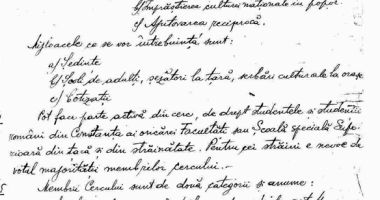 b) Împrăștierea culturii naționale în popor
c) Ajutorarea reciprocă.
Mijloacele ce se vor întrebuința sunt:
a) Ședințe
b) Școli de adulți, șezători la țară, serbări culturale la orașe
c) Cotizații
Pot face parte activă din cerc, de drept studentele și studenții
români din Constanța ai oricărei Facultăți sau Școală specială Supe-
rioară din țară și din străinătate. Pentru cei străini e nevoe de
votul majorității membrilor cercului.-
Membrii Cercului sunt de două categorii și anume: